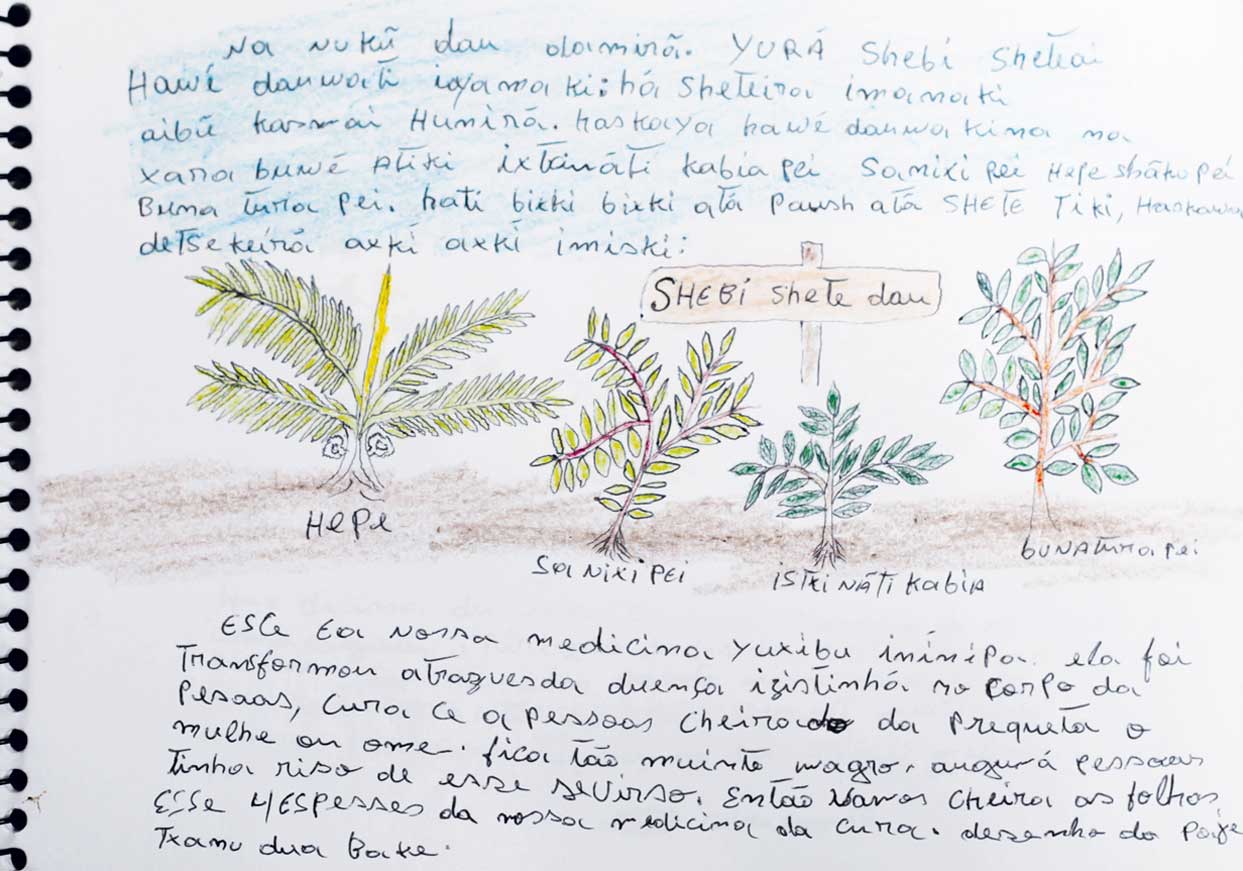 Na nukũ dau damirã. YURÁ Shebí Sheteai
Hawé dauwati iqyamaki: há Sheteira imanaki
aibũ kasmai Hunirã. haskaya hawé dauwakina na
xara buwé atiki ixtãnãti kabia pei Sanixi pei Hepe shãko pei
Buna tura pei. hati bixki bixki atã Paush atã SHETE Tiki, Haskawa
detsekeirã axkí axkí imiski:
SHEBÍ shete dau
Hepe
Sa Nixi pei
istxi nãti kabia
bunatura pei
ESCE Ea Nossa medicina yuxibu ininipa. ela foi
Transformou atrazuesda duença izistinhá no corpo da
pesaas, cura ce a pessoas cheirado da prequeta o
mulhe ou ome. fica tão muinto magro. augurá pessoaus
tinha riso de esse sevirso. Então vamos cheira as folhas
Esse 4/Espesses da nossa medicina da cura. desenho do Pajé
Txanu dua Bake.